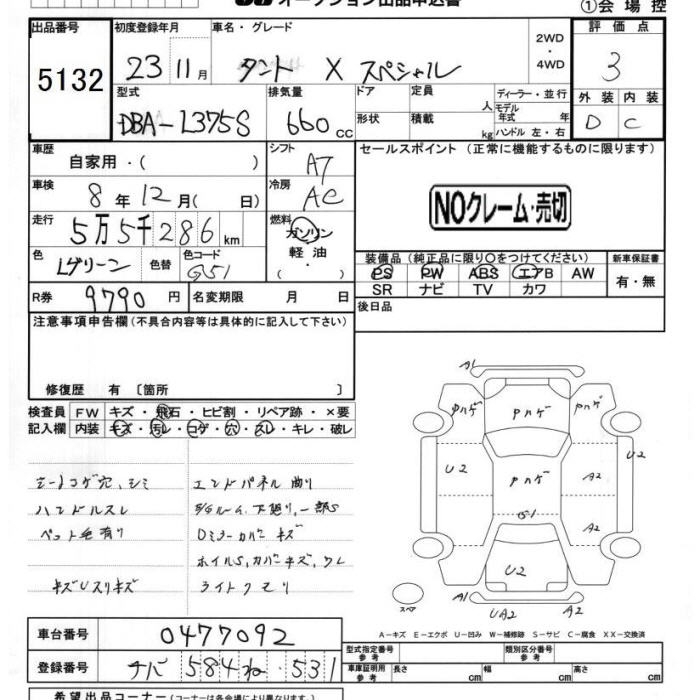 オークション出品申込書
①会場控
出品番号 初度登録年月 車名・グレード 2WD・4WD 評価点
5132 23 11月 タント X スペシャル 3
型式 排気量 ドア 定員 人 ディーラー・並行 外装 内装
モデル年式 年
DBA-L375S 660cc 形状 積載 kg ハンドル 左・右 D C
車歴 自家用・( ) シフト AT セールスポイント (正常に機能するものに限ります)
車検 8年12月( 日) 冷房 AC
NOクレーム・売切
走行 5万5千286km 燃料 ガソリン
軽油
・( )
色 Lグリーン 色替 色コード G51
装備品 (純正品に限り○をつけてください) 新車保証書
PS PW ABS エアB AW 有・無
SR ナビ TV カワ
R券 9790円 名変期限 月 日 後日品
注意事項申告欄(不具合内容等は具体的に記入して下さい)
修復歴 有 〔箇所 〕
検査員 FW キズ・飛石・ヒビ割・リペア跡・×要
記入欄 内装 キズ・汚レ・コゲ・穴・スレ・キレ・破レ
シートコゲ穴、シミ
ハンドルスレ
ペット毛有り
キズUスリキズ
エンドパネル曲り
下廻り、一部S
Dミラーカバーキズ
ホイルS,カバーキズ、ワレ
ライトクモリ
A1
U2 U2
A2
A2
U2
A1 UA2 A2
スペア
A-キズ E-エクボ U-凹み W-補修跡 S-サビ C-腐食 XX-交換済
車台番号 0477092
型式指定番号 参考 類別区分番号 参考
登録番号 チバ 584 ね 531
車庫証明用 参考 長さ cm 幅 cm 高さ cm
希望出品コーナー(コーナーは各会場により異なります)